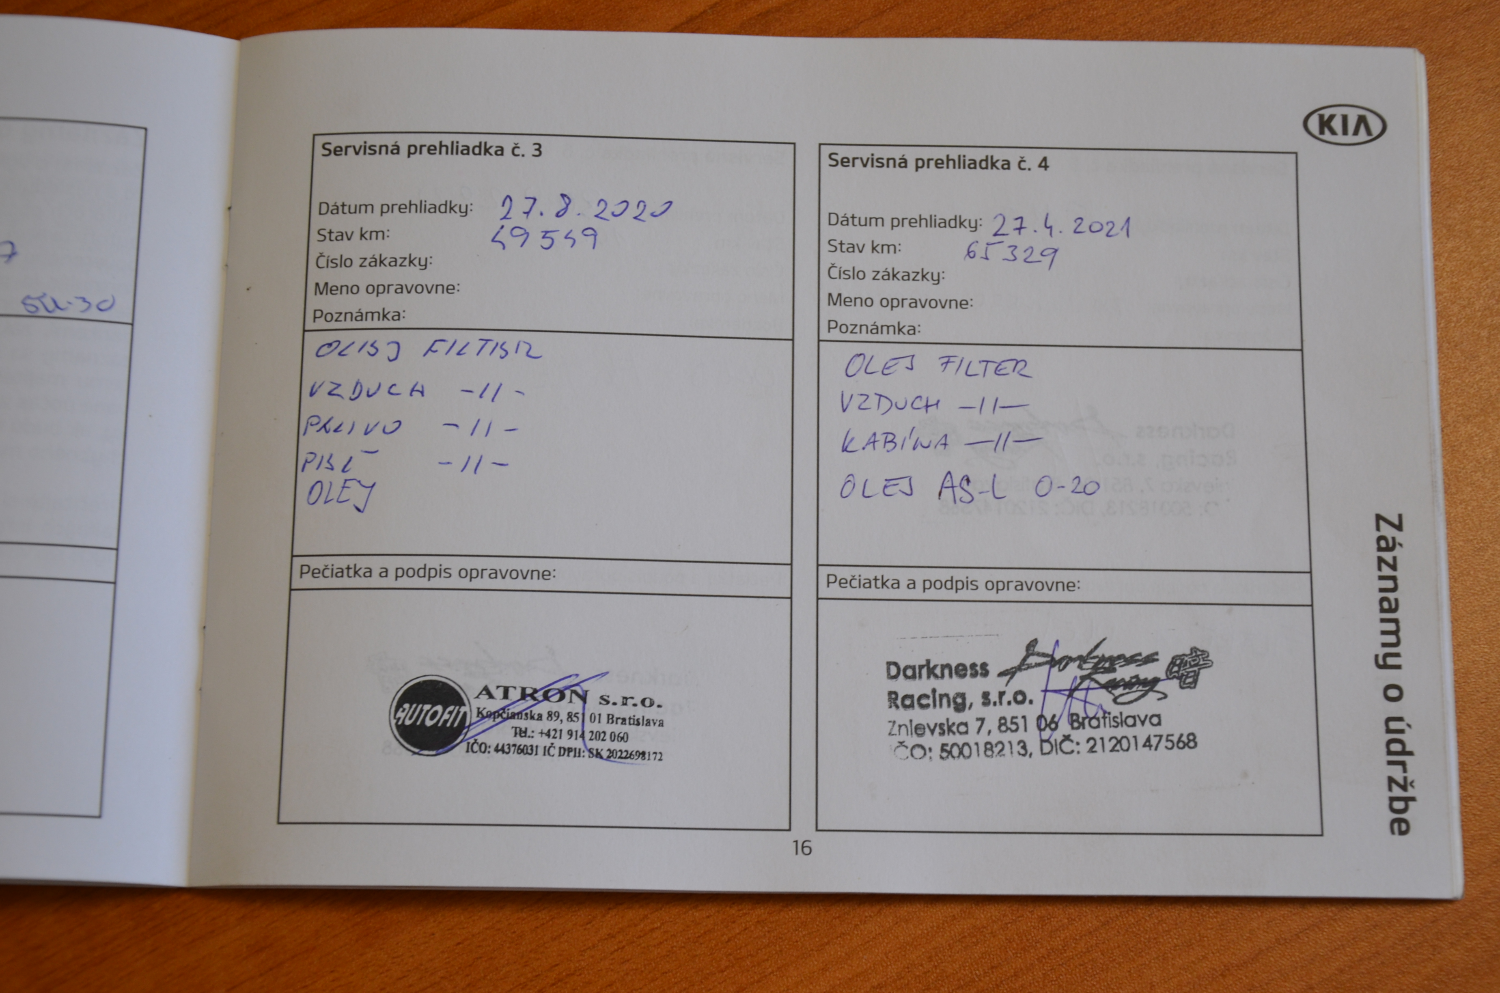 7
5W-30
KIA
Servisná prehliadka č. 3
Dátum prehliadky: 27.8.2020
Stav km: 49549
Číslo zákazky:
Meno opravovne:
Poznámka:
OLEJ FILTER
VZDUCH -11-
PALIVO -11-
PEĽ -11-
OLEJ
Pečiatka a podpis opravovne:
AUTOFIT
ATRON s.r.o.
Kopčianska 89, 851 01 Bratislava
Tel.: +421 914 202 060
IČO: 44376031 IČ DPH: SK 2022698172
Servisná prehliadka č. 4
Dátum prehliadky: 27.4.2021
Stav km: 65329
Číslo zákazky:
Meno opravovne:
Poznámka:
OLEJ FILTER
VZDUCH -11-
KABÍNA -11-
OLEJ AS-L 0-20
Pečiatka a podpis opravovne:
Darkness Darkness
Racing, s.r.o. Racing
Znievska 7, 851 06 Bratislava
IČO: 50018213, DIČ: 2120147568
16
Záznamy o údržbe